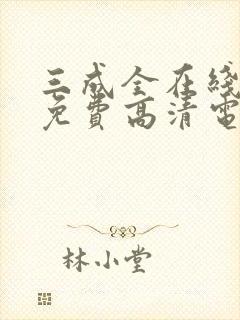 三成全在线
免费高清电
林小堂